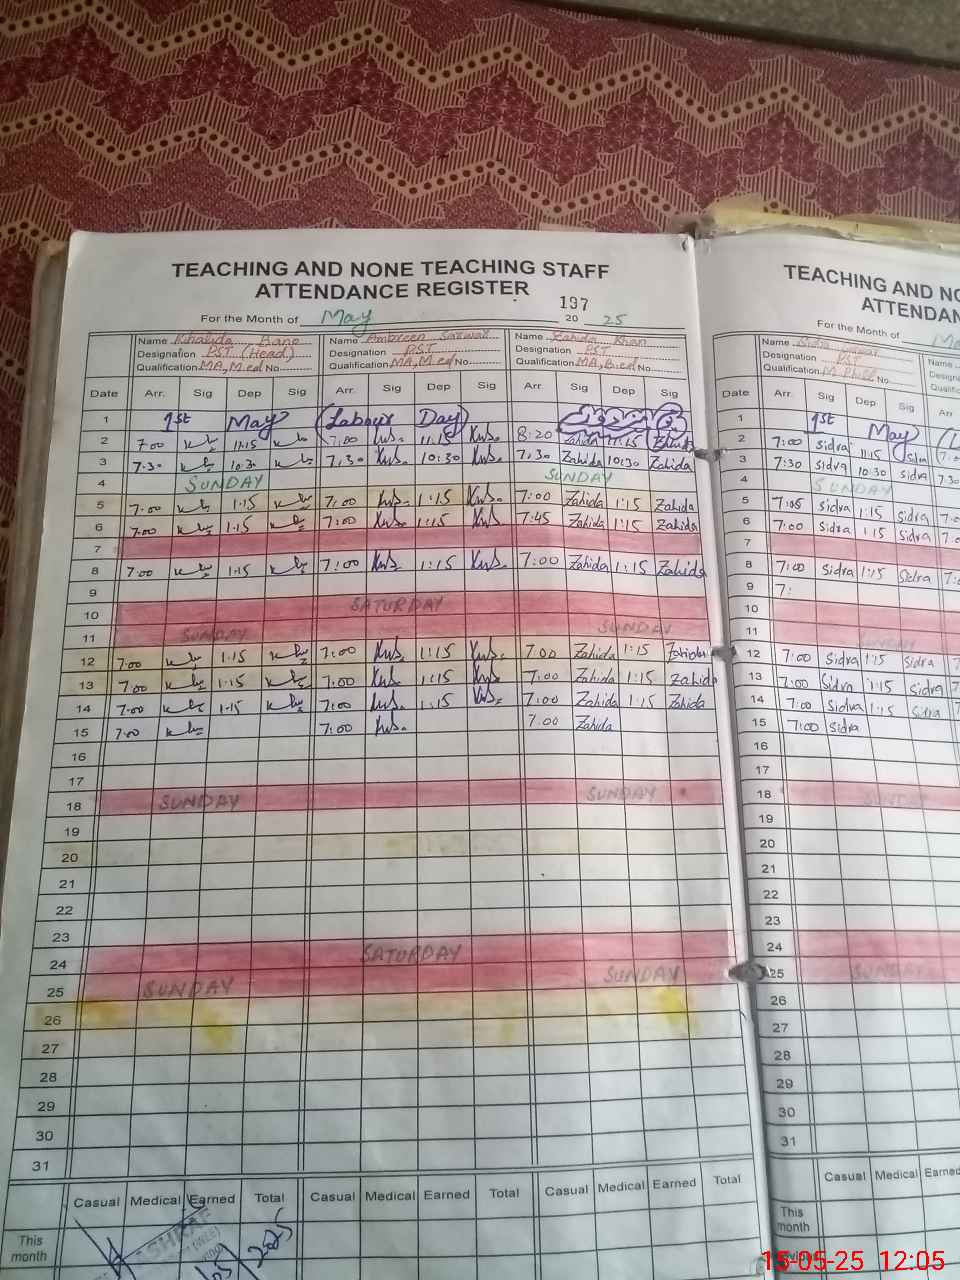 TEACHING AND NONE TEACHING STAFF
ATTENDANCE REGISTER
197
For the Month of May 20 25
Name Khalida Bano Name Ambreen Sarwar Name Zahida Khan
Designation PST (Head) Designation PST Designation PST
Qualification MA, M.ed No Qualification MA, M.ed No Qualification MA, B.ed No
Date Arr. Sig Dep Sig Arr. Sig Dep Sig Arr. Sig Dep Sig
1 1st May (Labour Day)
2 7:00 11:15 7:00 11:15 8:20 Zahida 11:15 Zahida
3 7:30 10:30 7:30 10:30 7:30 Zahida 10:30 Zahida
4 SUNDAY SUNDAY
5 7:00 1:15 7:00 1:15 7:00 Zahida 1:15 Zahida
6 7:00 1:15 7:00 1:15 7:45 Zahida 1:15 Zahida
7
8 7:00 1:15 7:00 1:15 7:00 Zahida 1:15 Zahida
9
10 SATURDAY
11 SUNDAY SUNDAY
12 7:00 1:15 7:00 1:15 7:00 Zahida 1:15 Zahida
13 7:00 1:15 7:00 1:15 7:00 Zahida 1:15 Zahida
14 7:00 1:15 7:00 1:15 7:00 Zahida 1:15 Zahida
15 7:00 7:00 7:00 Zahida
16
17
18 SUNDAY SUNDAY
19
20
21
22
23
24 SATURDAY
25 SUNDAY SUNDAY
26
27
28
29
30
31
Casual Medical Earned Total Casual Medical Earned Total Casual Medical Earned Total
This
month
TEACHING AND NO
ATTENDA
For the Month of Ma
Name Sidra
Designation PST
Qualification M Phill No
Date Arr. Sig Dep Sig Arr
1 1st May (L
2 7:00 Sidra 11:15
3 7:30 Sidra 10:30 Sidra
4 SUNDAY
5 7:05 Sidra 1:15 Sidra
6 7:00 Sidra 1:15 Sidra
7
8 7:00 Sidra 1:15 Sidra
9 7:
10
11 SUNDAY
12 7:00 Sidra 1:15 Sidra
13 7:00 Sidra 1:15 Sidra
14 7:00 Sidra 1:15 Sidra
15 7:00 Sidra
16
17
18 SUNDAY
19
20
21
22
23
24
25 SUNDAY
26
27
28
29
30
31
Casual Medical Earned
This
month
15-05-25 12:05